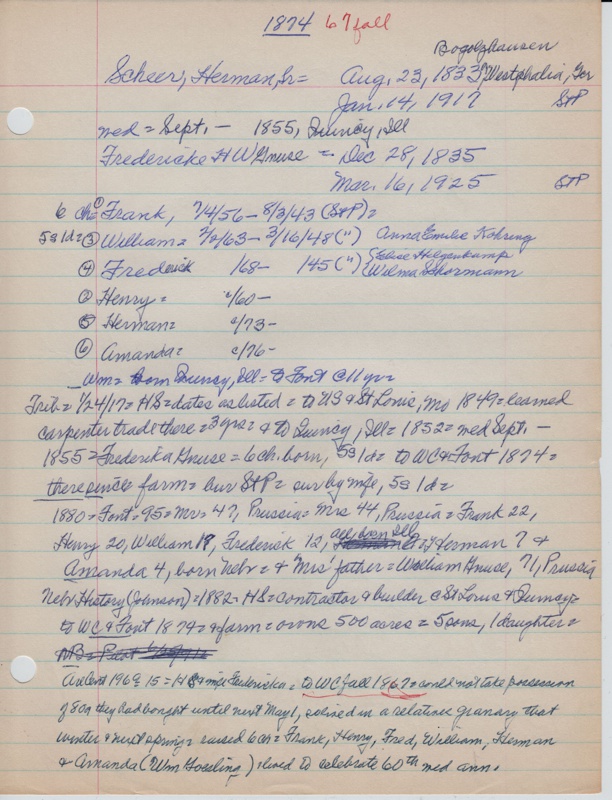 1874 67 fall
Bogolzhausen
Scheer, Herman, Sr = Aug. 23, 1833, Westphalia, Ger
Jan. 14, 1917 StP
med = Sept. - 1855, Quincy, Ill
Fredericke H W Gnuse = Dec 28, 1835
Mar. 16, 1925 StP
6 ch = ① Frank, 7/4/56 - 8/3/43 (StP) =
5s 1d = ③ William = 2/2/63 - 3/16/48 (") Anna Emilie Kohring
④ Frederick /68 - /45 (") Elise Helgenkamp Wilma Schormann
② Henry = c/60 -
⑤ Herman = c/73 -
⑥ Amanda = c/76 -
Wm = born Quincy, Ill = to Font @ 11 yr =
Trib = 1/24/17 = HS = dates as listed = to US & St Louis, Mo 1849 = learned
carpenter trade there = 3 yrs = & to Quincy, Ill = 1852 = med Sept. -
1855 = Frederika Gnuse = 6 ch. born, 5s 1d = to WC & Font 1874 =
there since = farm = bur StP = sur by wife, 5s 1d =
1880 = Font = 95 = Mr = 47, Prussia = Mrs 44, Prussia = Frank 22,
Henry 20, William 17, Frederick 12, all born Ill = Herman 7 &
Amanda 4, born Nebr = & "Mrs" father = William Gnuse, 71, Prussia
Nebr History (Johnson) = 1882 = HS = contractor & builder @ St Louis & Quincy =
to WC & Font 1874 = & farm = owns 500 acres = 5 sons, 1 daughter =
ArlCent 1969 15 = HS & wife Fredericka = to WC fall 1867 = could not take possession
of 80a they had bought until next May 1, so lived in a relatives granary that
winter & next spring = raised 6 ch = Frank, Henry, Fred, William, Herman
& Amanda (Wm Goesling) = lived to celebrate 60th wed ann.